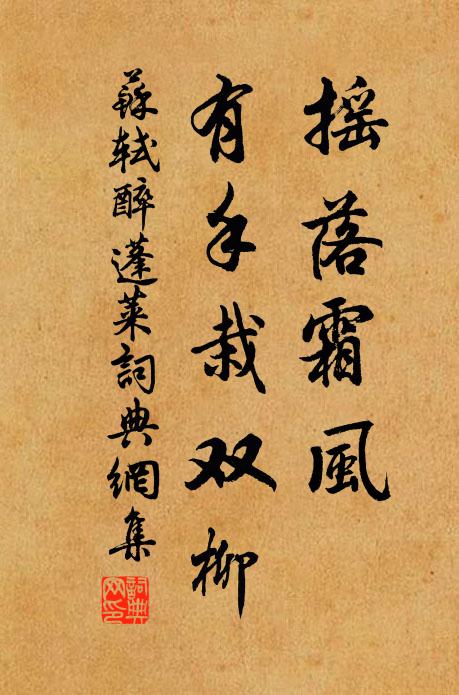 摇落霜風
有手栽双柳
蘇軾醉蓬萊詞典網集
詞典
网印